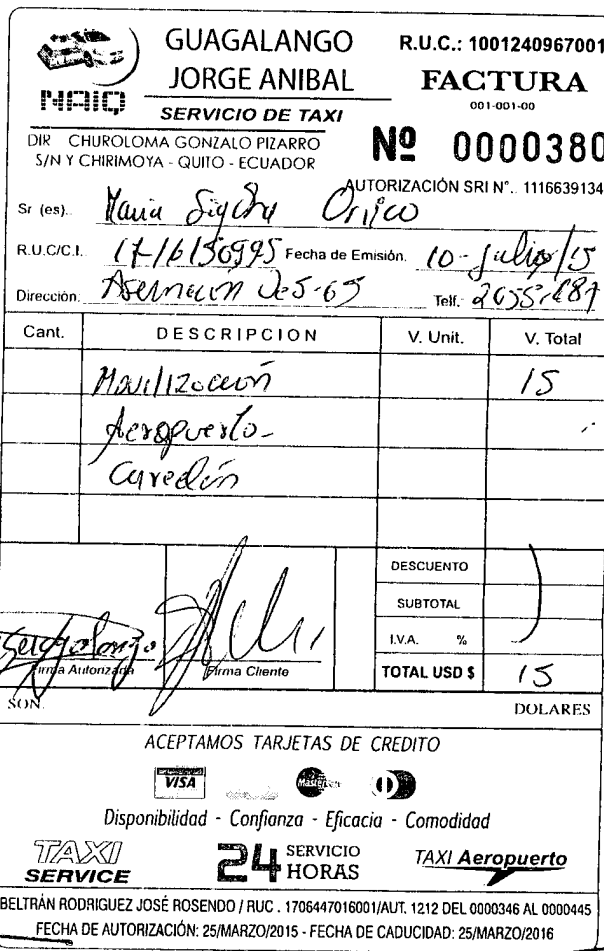 GUAGALANGO
JORGE ANIBAL
SERVICIO DE TAXI
NAIQ
R.U.C.: 1001240967001
FACTURA
001-001-00
Nº 0000380
DIR CHUROLOMA GONZALO PIZARRO
S/N Y CHIRIMOYA - QUITO - ECUADOR
AUTORIZACIÓN SRI Nº.. 1116639134
Sr (es).. Maria
R.U.C/C.I. Fecha de Emisión. 10-Julio/15
Dirección: Telf.
Cant. DESCRIPCION V. Unit. V. Total
Movilización 15
Aeropuerto-
DESCUENTO
SUBTOTAL
I.V.A. %
Firma Autorizada Firma Cliente TOTAL USD $ 15
SON. DOLARES
ACEPTAMOS TARJETAS DE CREDITO
VISA MasterCard
Disponibilidad - Confianza - Eficacia - Comodidad
TAXI SERVICE 24 SERVICIO HORAS TAXI Aeropuerto
BELTRÁN RODRIGUEZ JOSÉ ROSENDO / RUC . 1706447016001/AUT. 1212 DEL 0000346 AL 0000445
FECHA DE AUTORIZACIÓN: 25/MARZO/2015 - FECHA DE CADUCIDAD: 25/MARZO/2016